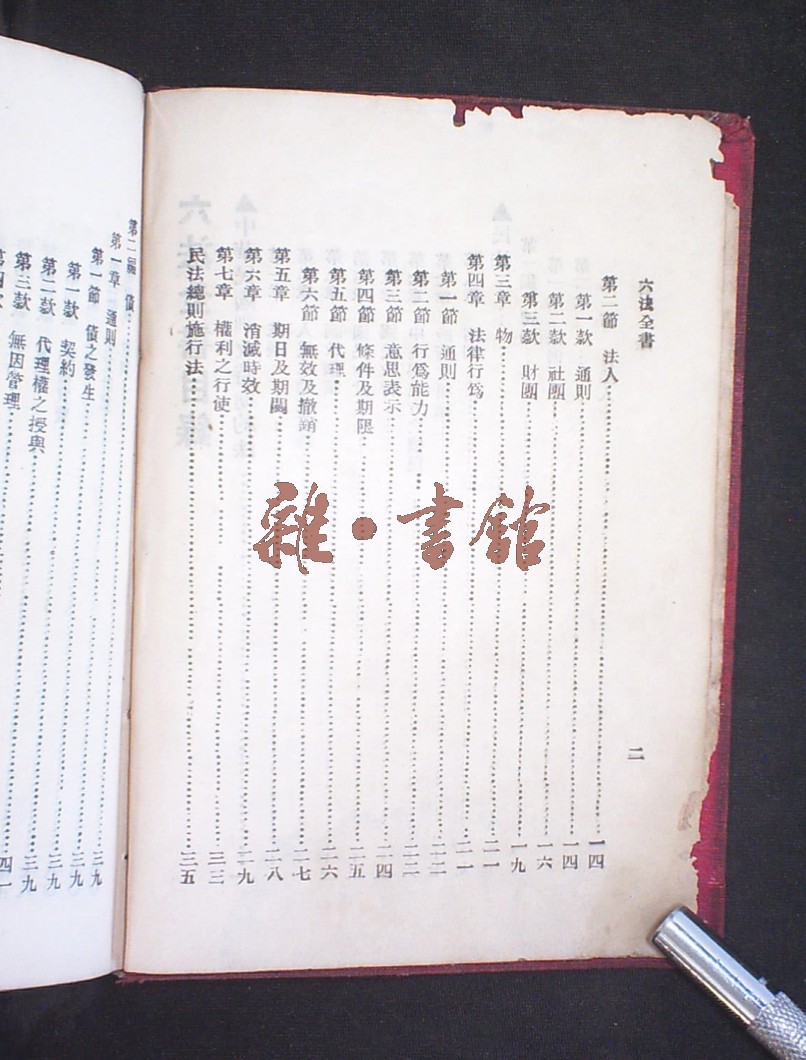 六法全書
二
第二節 法人………一四
第一款 通則………一四
第二款 社團………一六
第三款 財團………一九
第三章 物………二一
第四章 法律行爲………二一
第一節 通則………二二
第二節 行爲能力………二二
第三節 意思表示………二四
第四節 條件及期限………二五
第五節 代理………二六
第六節 無效及撤銷………二七
第五章 期日及期間………二八
第六章 消滅時效………二九
第七章 權利之行使………三三
民法總則施行法………三五
第二編 債
第一章 通則………二九
第一節 債之發生………三九
第一款 契約………三九
第二款 代理權之授與………三九
第三款 無因管理………四一
雜·書館